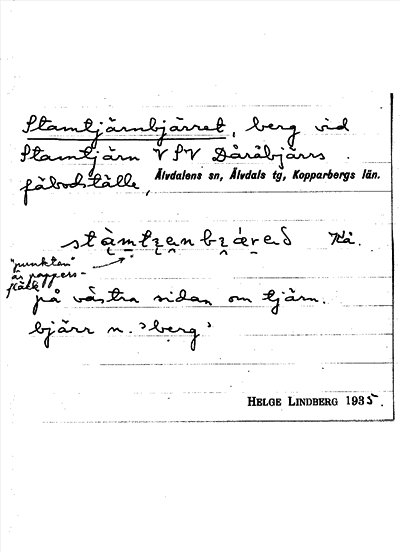 Stamtjärnbjärret, berg vid
Stamtjärn V S V Dåråbjärs
fäbodställe, Älvdalens sn, Älvdals tg, Kopparbergs län.
"punkten"
är pappers-
fläck
på västra sidan om tjärn.
bjärr n. 'berg'
HELGE LINDBERG 1935.